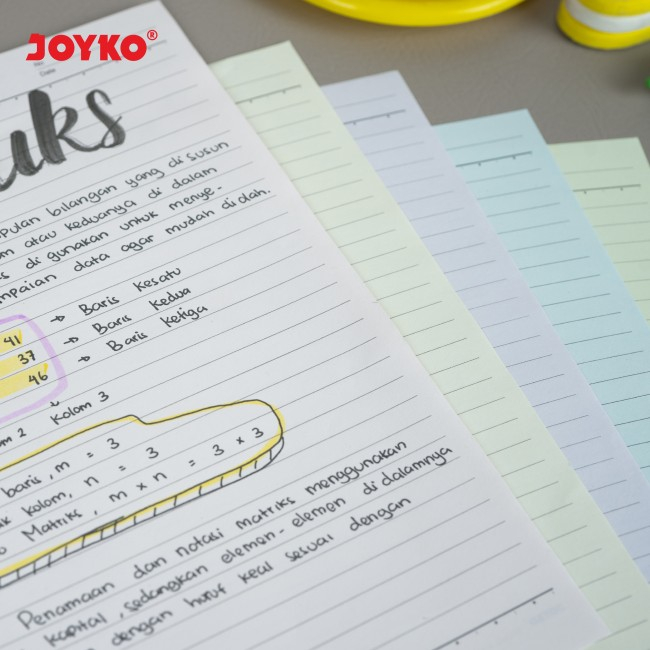 JOYKO®
No
Date
uks
pulan bilangan yang di susun
m atau keduanya di dalam
s di gunakan untuk menye-
mpaian data agar mudah diolah.
41 → Baris Kesatu
37 → Baris Kedua
46 → Baris Ketiga
om 2 Kolom 3
baris, m = 3
k kolom, n = 3
o Matriks, m x n = 3 x 3
Penamaan dan notasi matriks menggunakan
kapital, sedangkan elemen-elemen di dalamnya
dengan huruf kecil sesuai dengan